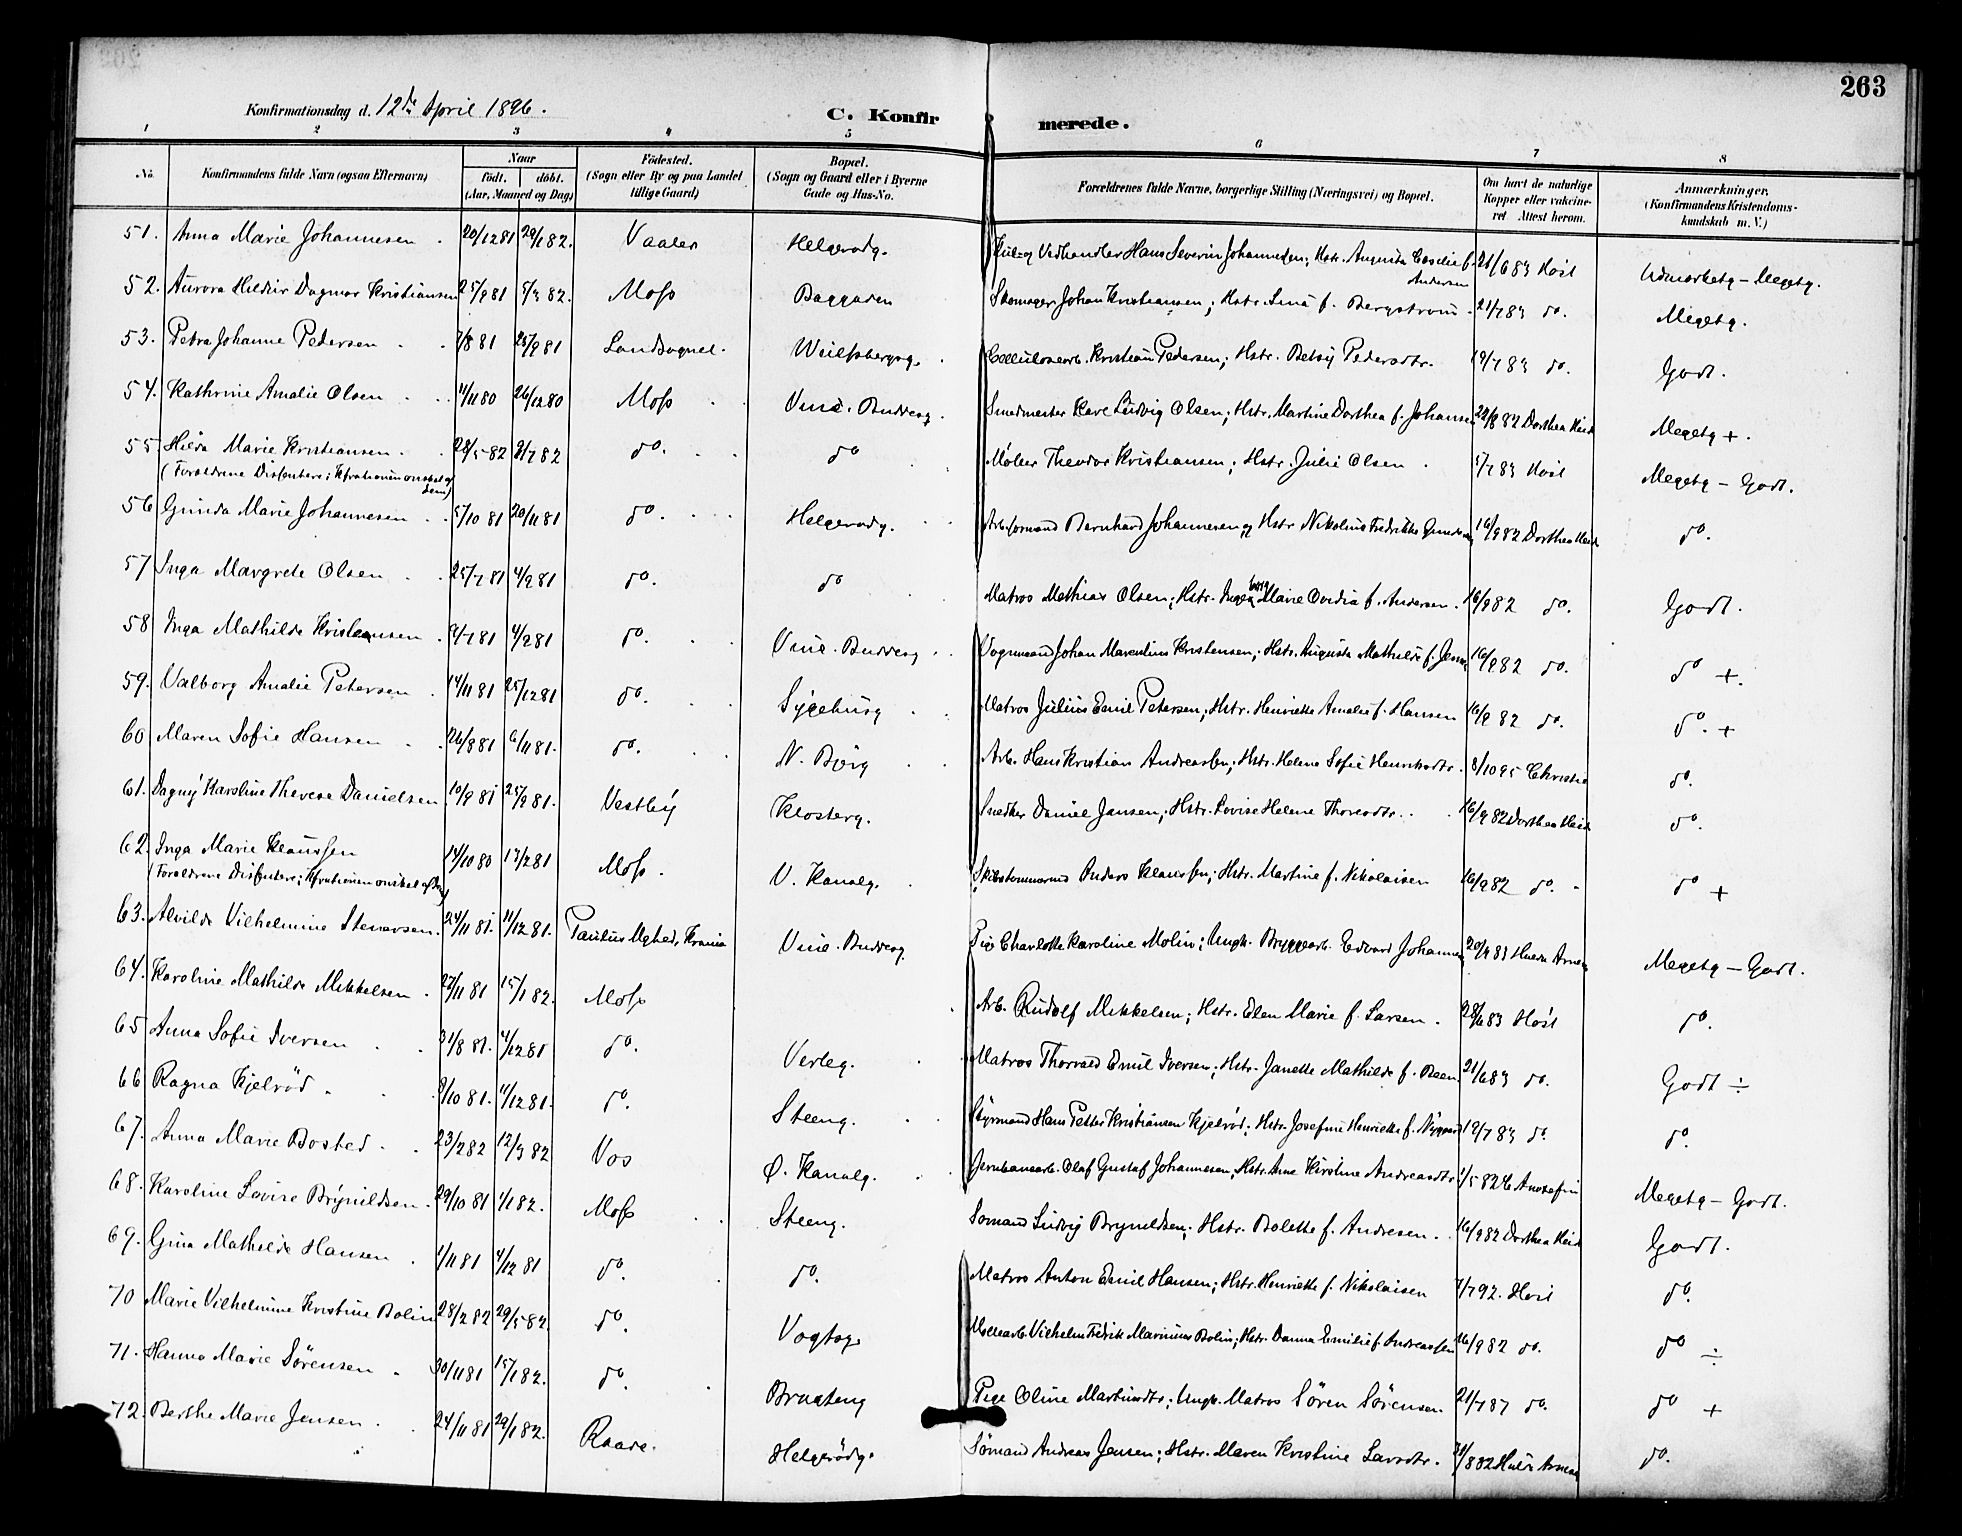 263
Konfirmationsdag d. 12te April 1896.
C. Konfirmerede.
1 2 3 4 5 6 7 8
No. Konfirmandens fulde Navn (ogsaa Efternavn) Naar födt. döbt. (Aar, Maaned og Dag) Födested. (Sogn eller By og paa Landet tillige Gaard) Bopæl. (Sogn og Gaard eller i Byerne Gade og Hus-No. Forældrenes fulde Navne, borgerlige Stilling (Næringsvei) og Bopæl. Om havt de naturlige Kopper eller vakcineret Attest herom. Anmærkninger. (Konfirmandens Kristendomskundskab m. V.)
51. Anna Marie Johannesen 20/12 81 29/1 82. Vaaler Helgerødg. Kul- og Vedhandler Hans Severin Johannesen; Hstr. Augusta Cecilie f. Andersen 21/6 83 Höst Udmærketg - Megetg.
52. Aurora Hildur Dagmar Kristiansen 25/9 81 5/3 82. Moss Baggaden Skomager Johan Kristiansen; Hstr. Lina f. Bergström 21/7 83 do. Megetg.
53. Petra Johanne Pedersen 7/8 81 25/9 81 Landsognet. Wulfsbergsg. Cellulosearb. Kristian Pedersen; Hstr. Betsy Pedersdtr. 19/7 83 do. Godt.
54. Kathrine Amalie Olsen 4/11 80 26/12 80 Moss Vincs. Buddesg. Smedmester Karl Ludvig Olsen; Hstr. Martine Dorthea f. Johansen 22/8 82 Dorthea Heide Megetg +.
55 Hilda Marie Kristiansen 28/5 82 9/7 82 do. do Møller Theodor Kristiansen; Hstr. Julie Olsen 5/7 83 Höst Megetg - Godt.
(Forældrene Dissentere; Kfrationen önsket af dem)
56 Gunda Marie Johannesen 5/10 81 20/11 81 do. Helgerødg. Arbformand Bernhard Johannesen og Hstr Nikoline Fredrikke 16/9 82 Dorthea Heide do.
57 Inga Margrete Olsen 25/7 81 4/9 81 do. do Matros Mathias Olsen; Hstr. Ingeborg Marie Ovidia f. Andersen. 16/9 82 do. Godt.
58 Inga Mathilde Kristensen 9/7 81 4/9 81 do. Vinc. Buddesg Vognmand Johan Marentius Kristensen; Hstr. Augusta Mathilde f. 16/9 82 do. do +.
59. Valborg Amalie Petersen 14/11 81 25/12 81 do. Sygehusg Matros Julius Emil Petersen; Hstr. Henriette Amalie f. Hansen 16/9 82 do. do. +
60 Maren Sofie Hansen 26/8 81 6/11 81. do. N. Børg Arb. Hans Kristian Andreassen; Hstr. Helene Sofie Henriksdtr. 8/10 95 Christie do.
61. Dagny Karoline Therese Danielsen 10/9 81 25/9 81. Vestby Klosterg. Snedker Daniel Jansen; Hstr. Lovise Helene Thoresdtr. 16/9 82 Dorthea Heide do.
62. Inga Marie Klaussen 14/10 80 13/2 81 Moss. V. Kanalg. Skibstømmermd Anders Klaussen; Hstr. Martine f. Nikolaisen 16/9 82 do. do +
(Forældrene Dissentere; Kfrationen önsket af dem)
63. Alvilde Vilhelmine Stenersen. 24/11 81. 11/12 81. Paulus Mghed, Krania Vinc. Buddesg Pige Charlotte Karoline Molin; Ungk. Bryggearb. Edvard Johannesen 20/9 83 Hulda Arnesen Megetg - Godt.
64. Karoline Mathilde Mikkelsen 27/11 81 15/1 82. Moss Arb. Rudolf Mikkelsen; Hstr. Elen Marie f. Larsen. 28/6 83 Höst do.
65 Anna Sofie Iversen 31/8 81. 4/12 81 do. Verleg. Matros Thorvald Emil Iversen; Hstr. Janette Mathilde f. Been. 21/6 83 do. Godt ÷
66 Ragna Kjelröd 9/10 81. 4/12 81. do. Steeng. Styrmand Hans Petter Kristiansen Kjelröd; Hstr. Josefine Henriette f. Nygaard 19/7 83 do. do.
67. Anna Marie Bosted. 23/2 82 12/3 82 Vos Ø. Kanalg. Jernbanearb. Olaf Gustaf Johannesen, Hstr. Anne Kirstine Andreasdtr. 1/5 82 Megetg - Godt.
68. Karoline Lovise Brynildsen. 29/10 81 1/1 82. Moss Steeng. Sömand Ludvig Brynildsen; Hstr. Bolette f. Andresen. 16/9 82 Dorthea Heide Godt.
69. Gina Mathilde Hansen 1/11 81 4/12 81 do. do. Matros Anton Emil Hansen; Hstr. Henriette f. Nikolaisen 7/7 92. Höst do.
70 Marie Vilhelmine Kristine Bolin 28/2 82 29/5 82. do. Vogtsg. Møllearb. Vilhelm Fredrik Marinius Bolin; Hstr. Emilie f. Andreassen 16/9 82 do. do ÷
71. Hanna Marie Sörensen 30/11 81 15/1 82. do. Braateng Pige Oline Martinsdtr; Ungk. Matros Sören Sörensen 21/7 87 do. do +
72. Berthe Marie Jensen. 24/11 81 29/1 82. Raade. Helgerödg. Sömand Andreas Jensen; Hstr. Maren Kristine Larsdtr. 31/8 82 Hulda Arnesen do.